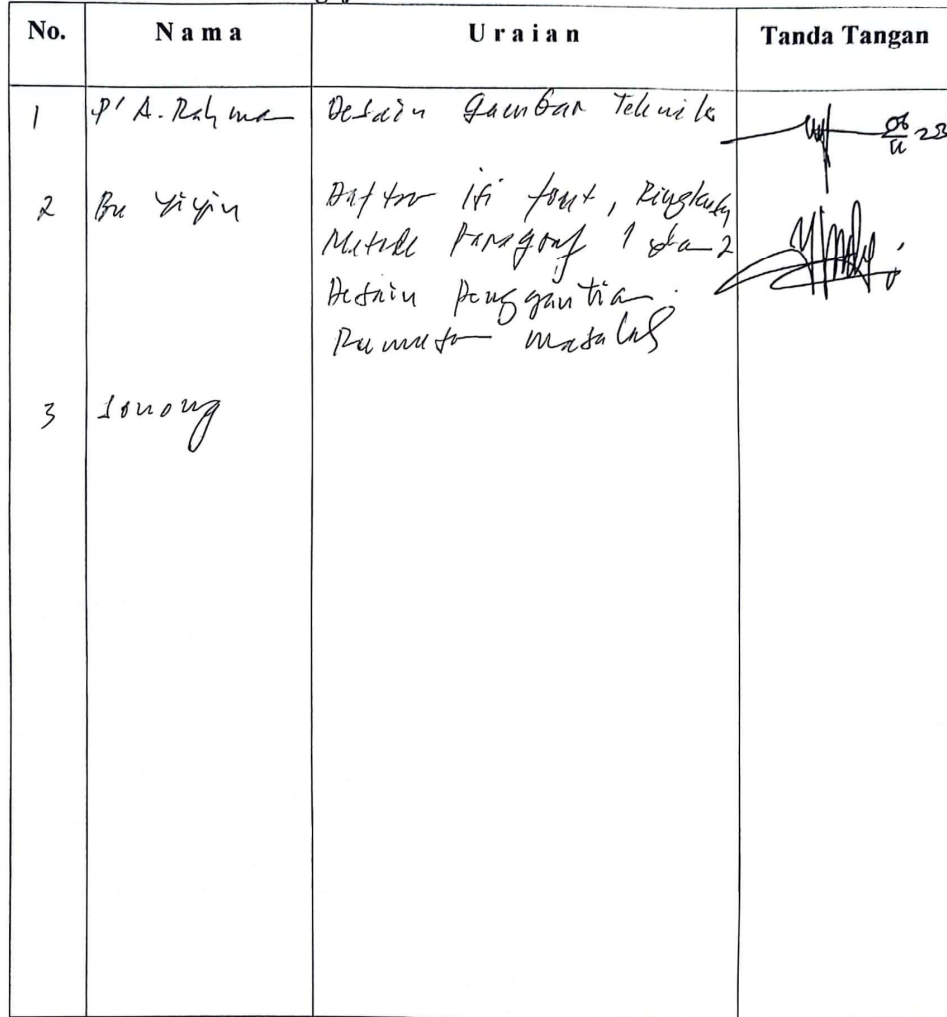 No. Nama Uraian Tanda Tangan
1 P' A. Rahman Desain Gambar Teknik
2 Bu Yiyin Daftar isi font, Ringkasan
Metode Paragraf 1 dan 2
Desain Penggantian.
Rumusan masalah
3 Sonong